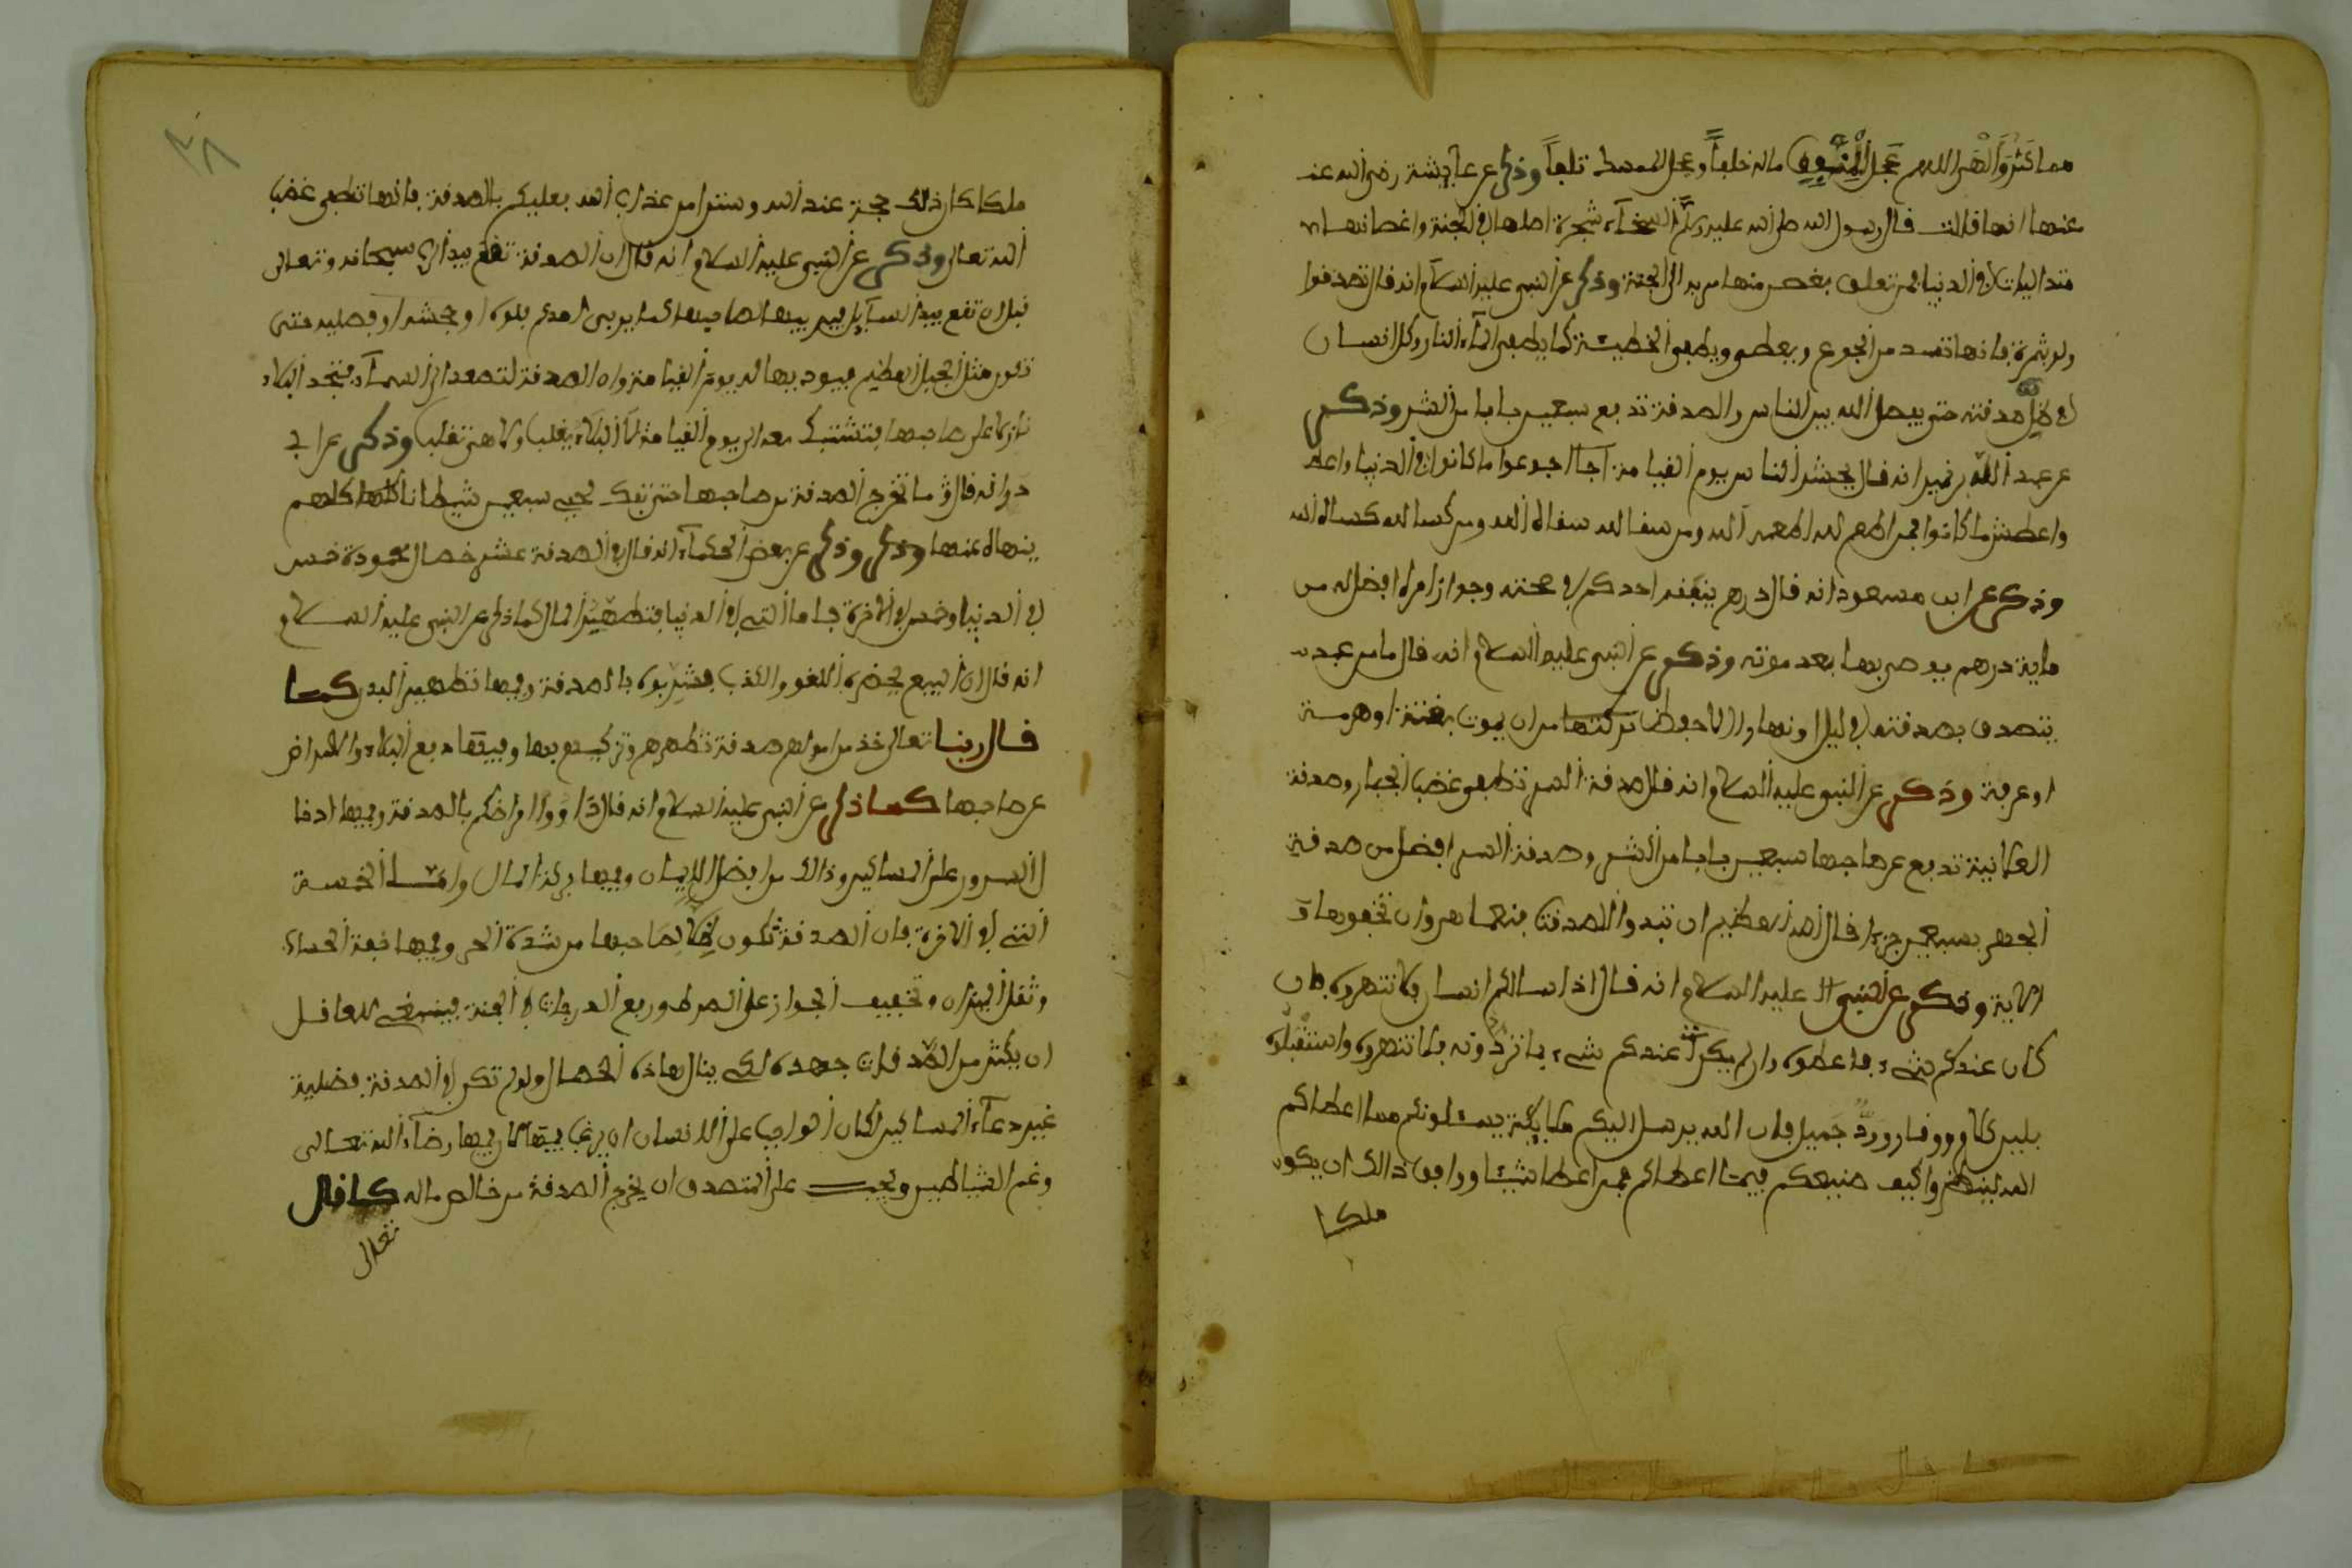 مما كثر وألهى اللهم عجل للمنفق ماله خلفا وعجل للممسك تلفا وذكر عن عايشة رضي الله عنـ
عنها انها قالت قال رسول الله صلى الله عليه وسلم السخاء شجرة اصلها في الجنة واغصانها
متداليات في الدنيا فمن تعلق بغصن منها مر به الى الجنة وذكر عن النبي عليه السلام انه قال تصدقوا
ولو بثمرة فانها تسد من الجوع وبعطي ويطفي الخطيئة كما يطفي الماء النار وكل انسان
في ظل صدقته حتى يفصل الله بين الناس والصدقة تدفع سبعين بابا من الشر وذكر
عن عبد الله بن نمير انه قال يحشر الناس يوم القيامة اجوعوا ما كانوا في الدنيا واعطـ
واعطش ما كانوا فمن اطعم لله اطعمه الله ومن سقا لله سقاه الله ومن كسا لله كساه الله
وذكر عن ابن مسعود انه قال درهم ينفقه احدكم في صحته وجواز امره افضل له من
ماية درهم يوصي بها بعد موته وذكر عن النبي عليه السلام انه قال ما من عبد
يتصدق بصدقة في ليل او نهار الا حفظ تركتها من ان يموت بغتة او هرمـة
او غرقة وذكر عن النبي عليه السلام انه قال صدقة السر تطفي غضب الجبار وصدقة
العلانية تدفع عن صاحبها سبعين بابا من الشر وصدقة السر افضل من صدقة
الجهر بسبعين جزءا قال الله العظيم ان تبدوا الصدقات فنعما هي وان تخفوها و
الاية وذكر عن النبي عليه السلام انه قال اذا سالكم انسان فلا تنهروه فان
كان عندكم شيء فاعطوه وان لم يكن عندكم شيء فلا تنهروه واستقبلوه
بلين كلام ووقار ورد جميل فان الله يرسل اليكم ملايكة يسئلونكم مما اعطاكم
الله لينظروا كيف صنيعكم فيما اعطاكم فمن اعطا شيئا ووافق ذالك ان يكون
ملكا
٣٨
ملكا كان ذلك حجة عند الله وستر من عذاب الله فعليكم بالصدقة فانها تطفي غضب
الله تعالى وذكر عن النبي عليه السلام انه قال ان الصدقة تقع بيد الله سبحانه وتعالى
قبل ان تقع بيد السايل فيربيها لصاحبها كما يربي احدكم فلوه او جحشه او فصيله حتى
تكون مثل الجبل العظيم فيجود بها له يوم القيامة وان الصدقة لتصعد الى السماء فتجد البلاء
نازلا على صاحبها فتشتبك معه الى يوم القيامة لا البلاء يغلب ولا هي تغلب وذكر عن ابي
ذر انه قال ما تخرج الصدقة من صاحبها حتى تفك لحيي سبعين شيطانا كلهم
ينهاه عنها وذكر وذكر عن بعض الحكماء انه قال في الصدقة عشر خصال محمودة خمس
في الدنيا وخمس في الاخرة فاما التي في الدنيا فتطهير المال كما ذكر عن النبي عليه السلام
انه قال ان البيع يحضره اللغو والكذب فشوبوه بالصدقة وفيها تطهير البدن كما
قال ربنا تعالى خذ من اموالهم صدقة تطهرهم وتزكيهم بها وفيها دفع البلاء والامراض
عن صاحبها كما ذكر عن النبي عليه السلام انه قال داووا امراضكم بالصدقة وفيها ادخا
ل السرور على المساكين وذالك من افضل الايمان وفيها بركة المال واما الخمسة
التي في الاخرة فان الصدقة تكون ظلا لصاحبها من شدة الحر وفيها خفة الحساب
وثقل الميزان وتخفيف الجواز على الصراط ورفع الدرجات في الجنة فينبغي للعاقل
ان يكثر من الصدقات جهده لكي ينال هاذه الخصال ولو لم تكن في الصدقة فضلية
غير دعاء المساكين لكان الواجب على الانسان ان يرغب فيها لان فيها رضاء الله تعالى
وغم الشياطين ويجب على المتصدق ان يخرج الصدقة من خالص ماله كما قال
تعالى